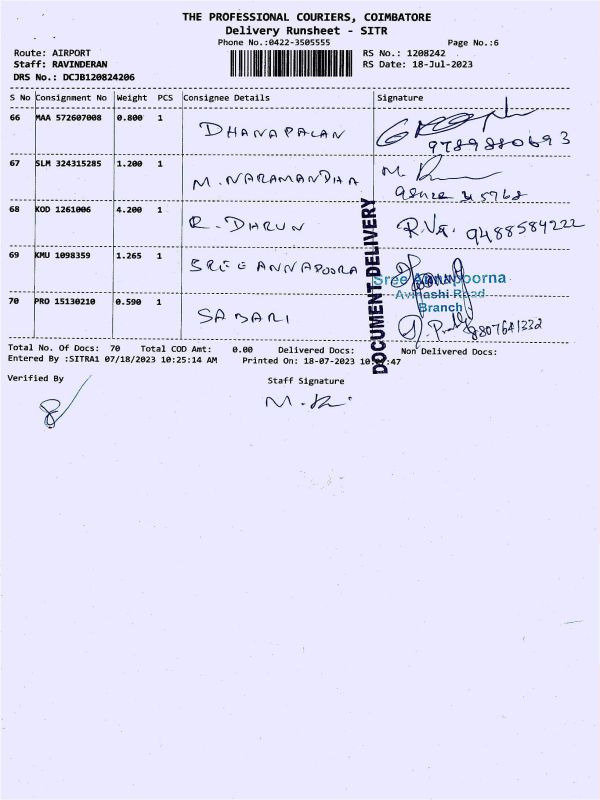 THE PROFESSIONAL COURIERS, COIMBATORE
Delivery Runsheet - SITR
Phone No.:0422-3505555 Page No.:6
Route: AIRPORT RS No.: 1208242
Staff: RAVINDERAN RS Date: 18-Jul-2023
DRS No.: DCJB120824206
S No Consignment No Weight PCS Consignee Details Signature
66 MAA 572607008 0.800 1 DHANAPALAN
9789880693
67 SLM 324315285 1.200 1 M. NARAMANDHA M.
68 KOD 1261006 4.200 1 R. DHRUN 9488584222
69 KMU 1098359 1.265 1 SREE ANNAPOORA
Sree Annapoorna
Avinashi Road
Branch
70 PRO 15130210 0.590 1 SABARI 8807641332
DOCUMENT DELIVERY
Total No. Of Docs: 70 Total COD Amt: 0.00 Delivered Docs: Non Delivered Docs:
Entered By :SITRA1 07/18/2023 10:25:14 AM Printed On: 18-07-2023 :47
Verified By Staff Signature